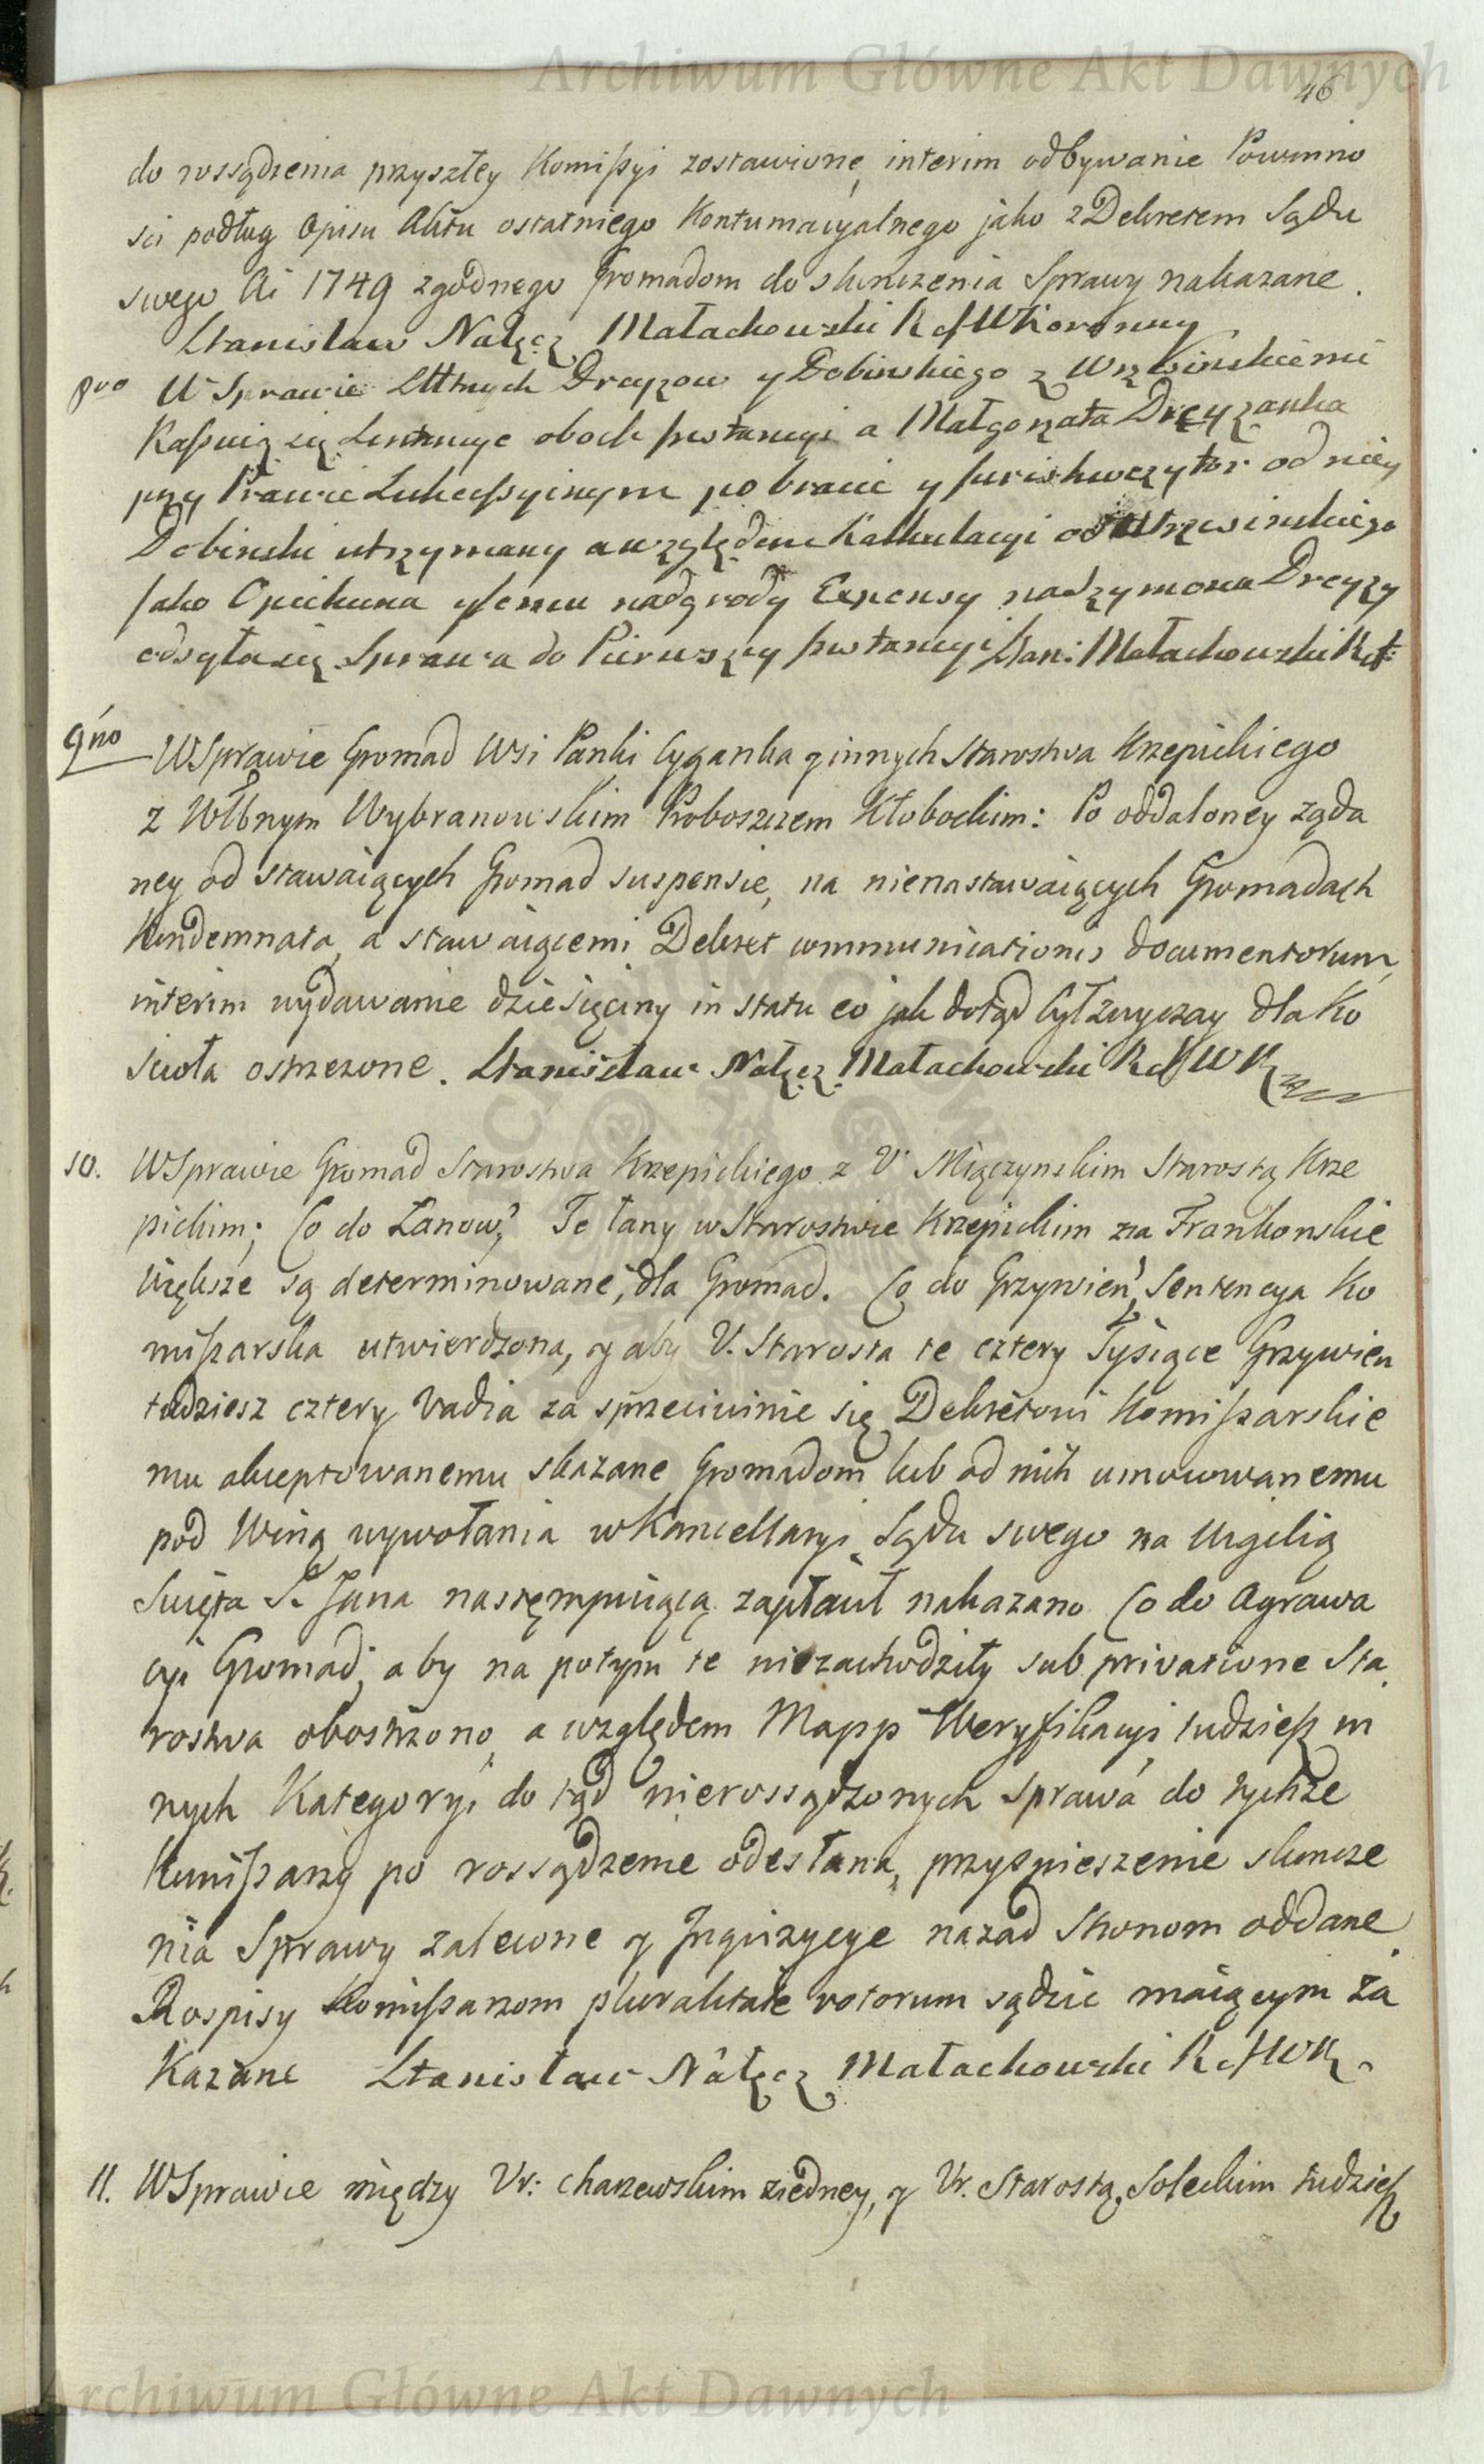 Archiwum Główne Akt Dawnych
46
do rossądzenia przyszłey Komißyi zostawione, interim odbywanie Powinno
sci podług Opisu Aktu ostatniego Kontumacyalnego jako z Dekretem Sądu
swego Ai 1749 zgodnego Gromadom do skończenia Sprawy nakazane.
Stanisław Nałęcz Małachowski R W Koronny
8vo W Sprawie Dreyzow y Dobinskiego z
Kaßuią się Sentencye oboch Instancyi a Małgorzata Dreyzanka
przy Prawie Sukceßyinym po bracie y od niey
Dobinski utrzymany a względem Kalkulacyi od
Jako Opiekuna y Jemu nadgrody Expensy na Szymona Dreyzy
odsyła się Sprawa do Pierwszey Instancyi Stan: Małachowski Ref:
9no W Sprawie Gromad Wsi Panki Cyganka y innych Starostwa Krzepickiego
z Wlbnym Wybranowskim Proboszczem Kłobockim: Po oddaloney żąda
ney od stawaiących Gromad suspensie, na nienastawaiących Gromadach
Kondemnata, a stawaiącemi Dekret communicationis documentorum,
interim wydawanie dziesięciny in statu eo jak dotąd był zwyczay dla Ko
scioła ostrzezone. Stanisław Nałęcz Małachowski R W K
10. W Sprawie Gromad Starostwa Krzepickiego z U. Miączynskim Starostą Krze
pickim; Co do Łanow; Te łany w Starostwie Krzepickim za Frankonskie
większe są determinowane, dla Gromad. Co do Grzywien, Sentencya Ko
mißarska utwierdzona, y aby U. Starosta te cztery Tysiące Grzywien
tudziesz cztery Vadia za sprzeciwinie się Dekretowi Komißarskie
mu akceptowanemu skazane Gromadom lub od nich umocowanemu
pod Winą wywołania w Kancellaryi Sądu swego na Wigilią
Swięta S. Jana nastęmpuiącą zapłacił nakazano Co do Agrawa
cyi Gromad, aby na potym te niezachodziły sub privatione Sta
rostwa obostrzono, a względem Mapp Weryfikacyi tudzieß in
nych Kategoryi do tąd nierossądzonych sprawa do tychże
Komißarzy po rossądzenie odesłana, przyspieszenie skończe
nia Sprawy zalecone y Inquizycye nazad Stronom oddane.
Rospisy Komißarzom pluralitate votorum sądzic maiącym za
Kazane Stanisław Nałęcz Małachowski R W K
11. W Sprawie między Ur: Charzewskim ziedney, y Ur. Starostą Soleckim tudzieß
Archiwum Główne Akt Dawnych